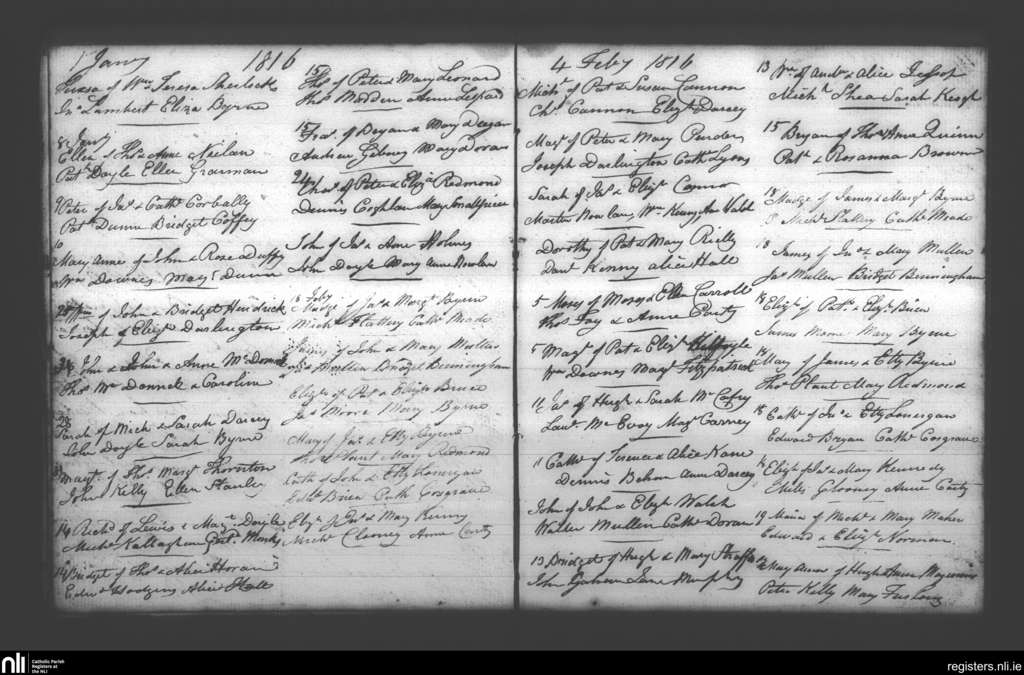 1 Jany 1816
Teresa of Wm & Teresa Sherlock
Jno Lambert Eliza Byrne
8 Jany
Ellen of Thos & Anne Neilan
Patt Doyle Ellen Grannan
9 Peter of Jas & Cathe Corbally
Patt Dunne Bridget Coffey
10
Mary Anne of John & Rose Duffy
Wm Downes Mary Dunn
of John & Bridget Hendrick
Joseph & Eliza Darlington
John & Anne McDonnel
Thos McDonnell & Caroline
28
Sarah of Mich & Sarah Darcy
John Doyle Sarah Byrne
Margt of Thos Margt Thornton
John Kelly Ellen Stanley
14 Richd of Lewis & Mart Doyle
Michl Kallaghan
14 Bridget of Thos & Alice Horan
Edwd Hodgins Alice Hall
15
Thos of Peter & Mary Leonard
Thos Madden Anne
15
Fras of Bryan & Mary Deegan
Andrew Mary Doran
24
Chas of Peter & Eliza Redmond
Dennis Coghlan Mary Smallpiece
John of Jas & Anne Holmes
John Doyle Mary Anne Nowlan
18 Feby
Madge of Jas & Margt Byrne
Mich Flattery Cathe Meade
James of John & Mary Mullen
Mullen Bridget Birmingham
Elizth of Pat & Elizth Brien
Jas Moore Mary Byrne
Mary of Jas & Etty Byrne
Thos Plant Mary Redmond
Cath of John & Etty Lonergan
Edwd Brien Cath Cosgrave
Elizt of Jas & Mary Kenny
Michl Clooney Anne Canty
4 Feby 1816
Michl of Pat & Susan Cannon
Chs Cannon Elizt Darcey
Mart of Peter & Mary Penders
Joseph Darlington Cathe Lyons
Sarah of Jas & Elizt Connor
Martin Nowlan Wm Kenny
Dorothy of Pat & Mary Rielly
Danl Kenny Alice Hall
5 Moses of Moses & Ellen Carroll
Thos Fay & Anne Canty
5 Margt of Pat & Elizt Kilfoyle
Wm Downes Margt Fitzpatrick
11 Jas of Hugh & Sarah McCafry
Lawr McEvoy Margt Carney
11 Cathe of Terence & Alice Kane
Dennis Behan Anne Darcey
John of John & Elizth Walsh
Walter Mullen Cathe Doran
13 Bridget of Hugh & Mary
John Graham Jane Murphy
13 Wm of Andw & Alice Jessop
Michl Shea Sarah Keogh
15
Bryan of Thos & Anne Quinn
Patt & Rosanna Brown
18
Madge of James & Margt Byrne
Michl Flattery Cathe Meade
18
James of Jno & Mary Mullen
Jas Mullen Bridget Birmingham
18 Elizt of Patt & Elizt Brien
James Moore Mary Byrne
18
Mary of James & Etty Byrne
Thos Plant Mary Redmond
18 Cathe of Jno & Etty Lonergan
Edward Bryan Cathe Cosgrave
18 Elizt of Jas & Mary Kennedy
Miles Clooney Anne Canty
19 Maria of Michl & Mary Maher
Edward & Elizt Norman
Mary Anne of Hugh & Anne
Peter Kelly Mary Furlong
nli Catholic Parish
Registers at
the NLI
registers.nli.ie